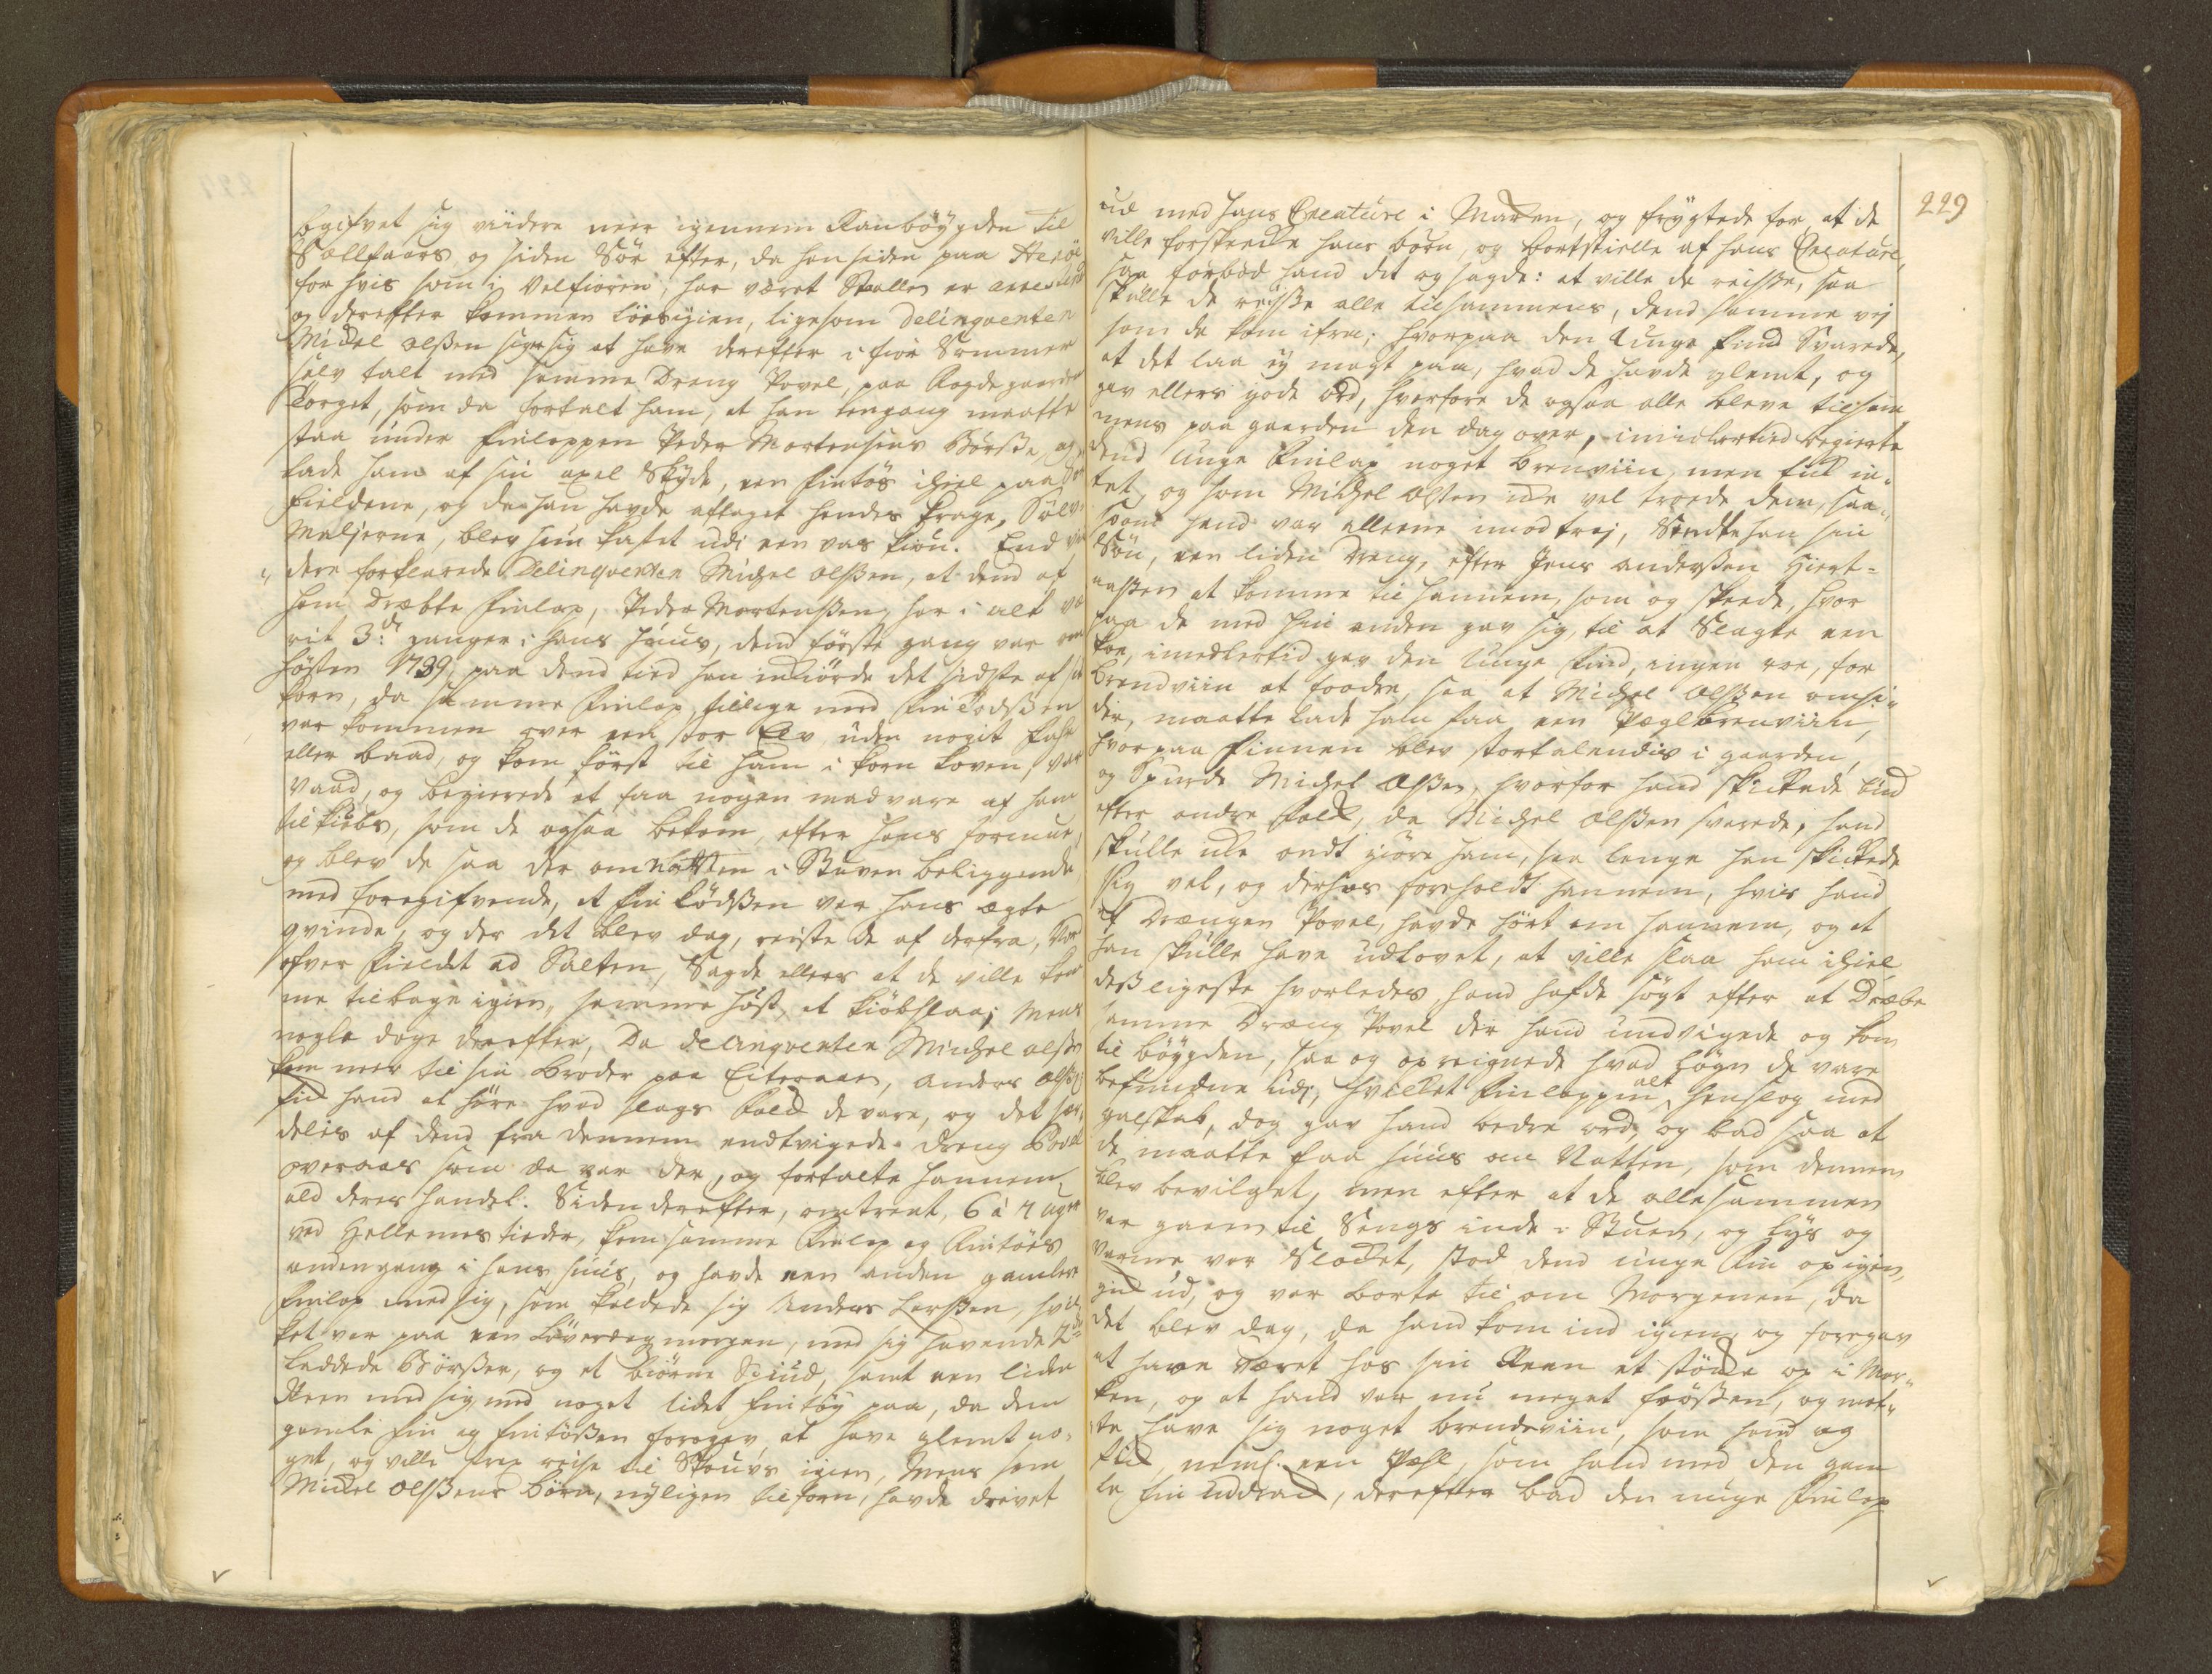 begifvet sig viidere neer igennem Ranbøygden til
Sollfaars og siden Sør efter, da han siden paa Herøe
for hvis som i Velfioren, har været Stollen er arresteret
og derefter kommen løes igien, ligesom Delinqventen
Mickel Olßen siger sig at have derefter i fior Sommer
selv talt med samme Dreng Povel, paa Rogde gaarden
Torget, som da fortalt ham, at han engang maatte
staa under Finlappen Peder Mortensens Børße, og
lade ham af sin axel Skyde, een fintøs ihiel paa
Fieldene, og da han havde aftaget hendes Krage, Sølv
Maljerne, blev hun kastet udi een vas kiøn. End vii
dere forklarede Delinqventen Michel Olßen, at dend af
ham dræbte Finlap, Peder Mortenßen, har i alt væ
rit 3de ganger i hans huus, dend første gang var om
høsten 1739, paa dend tid han indkiørde det sidste af sit
korn, da samme Finlap tillige med Finkodßen
var kommen over een stor Elv uden nogit Fahr
eller baad, og kom først til ham i korn Loven, var
vaad, og begierede at faa nogen madvare af ham
til kiøbs, som de ogsaa bekom, efter hans formue,
og blev de saa der om Natten i Stuen beliggende
med foregifvende, at Fin kodßen var hans ægte
qvinde, og der det blev dag, reiste de af derfra, Nor
ofver Fieldet ad Salten, Sagde ellers at de ville kom
me tilbage igien, samme høst, at kiøbslaa; Mens
nogle dage derefter, Da delinqventen Michel Olßen
kom neer til sin Broder paa Eiteraaen, Anders Olßen
fick hand at høre hvad slags Folck de vare, og det sær
delis af dend fra dennem undvigede dreng Povel
overaas som da var der, og fortalte hannem,
ald deres handel: Siden derefter, omtrent, 6 à 7 uger
ved Hellemestider, kom samme Finlap og Fintøes
anden gang i hans huus, og havde een anden gamler
Finlap med sig, som kaldede sig Anders Larßen, hvil
ket var paa een Løverdag morgen, med sig havende 2de
laddede Børßer, og et biørne Spiud, samt een liden
Reen med sig med noget lidet Fintøy paa, da den
gamle Fin og Fintøßen foregav, at have glemt no-
get, og ville strax reise til Skouvs igien, Mens som
Mickel Olßens børn, nyligen tilforn, havde drevet
229
ud med hans Creature i Marken, og frygtede for at de
ville forskrecke hans børn, og bortstielle af hans Creature,
saa forbød hand det og sagde: at ville de reiße, saa
skulle de reiße alle tilsammens, dend samme vej
som de kom ifra; hvorpaa den Unge Find Svarede,
at det laa ey magt paa, hvad de havde glemt, og
gav ellers gode ord, hvorfore de ogsaa alle bleve tilsam
mens paa gaarden den dag over, imidlertid begierte
dend Unge Finlap noget Brenviin, men fick in-
tet, og som Michel Olsen icke vel troede dem, saa-
som hand var alleene imod trej, Sendte han sin
Søn, een liden dreng, efter Jens Anderßen Hiert-
aaßen at komme til hannem, som og skeede, hvor
paa de med hin anden gav sig, til at Slagte een
koe, imedlertid gav den Unge Find, ingen roe, for
Brendviin at fordre, saa at Michel Olßen omsi-
der, maatte lade ham faa een Pægl brenviin,
hvorpaa Finnen blev stortalendis i gaarden,
og Spurde Michel Olßen, hvorfor hand skickede bud
efter andre Folck, da Michel Olßen svarede, hand
skulle icke ondt giøre ham, saa lenge han skickede
sig vel, og derhos foreholdt hannem, hvis hand
af Drængen Povel, havde hørt om hannem, og at
han skulle have udlovet, at ville slaa ham ihiel
deßligeste hvorledes hand hafde søgt efter at Dræbe
samme Dreng Povel der hand undvigede og kom
til bøygden, saa og opreignede hvad løgn de vare
befundne udi, hvilket Finlappen alt henslog med
galskab, dog gav hand bedre ord, og bad saa at
de maatte faa huus om Natten, som dennem
blev bevilget, men efter at de allesammen
var gaaen til Sengs inde i Stuen, og lys og
varme var Slocket, stod dend unge Fin op igien,
gick ud, og var borte til om Morgenen, da
det blev dag, da hand kom ind igien og foregav
at have været hos sin Reen at støcke op i Mar-
ken, og at hand var nu meget frøßen, og mat-
te have sig noget brendeviin, som hand og
fick, nemlig een Pæhl, som hand med den gam
le Fin uddrack, derefter bad den unge Finlap